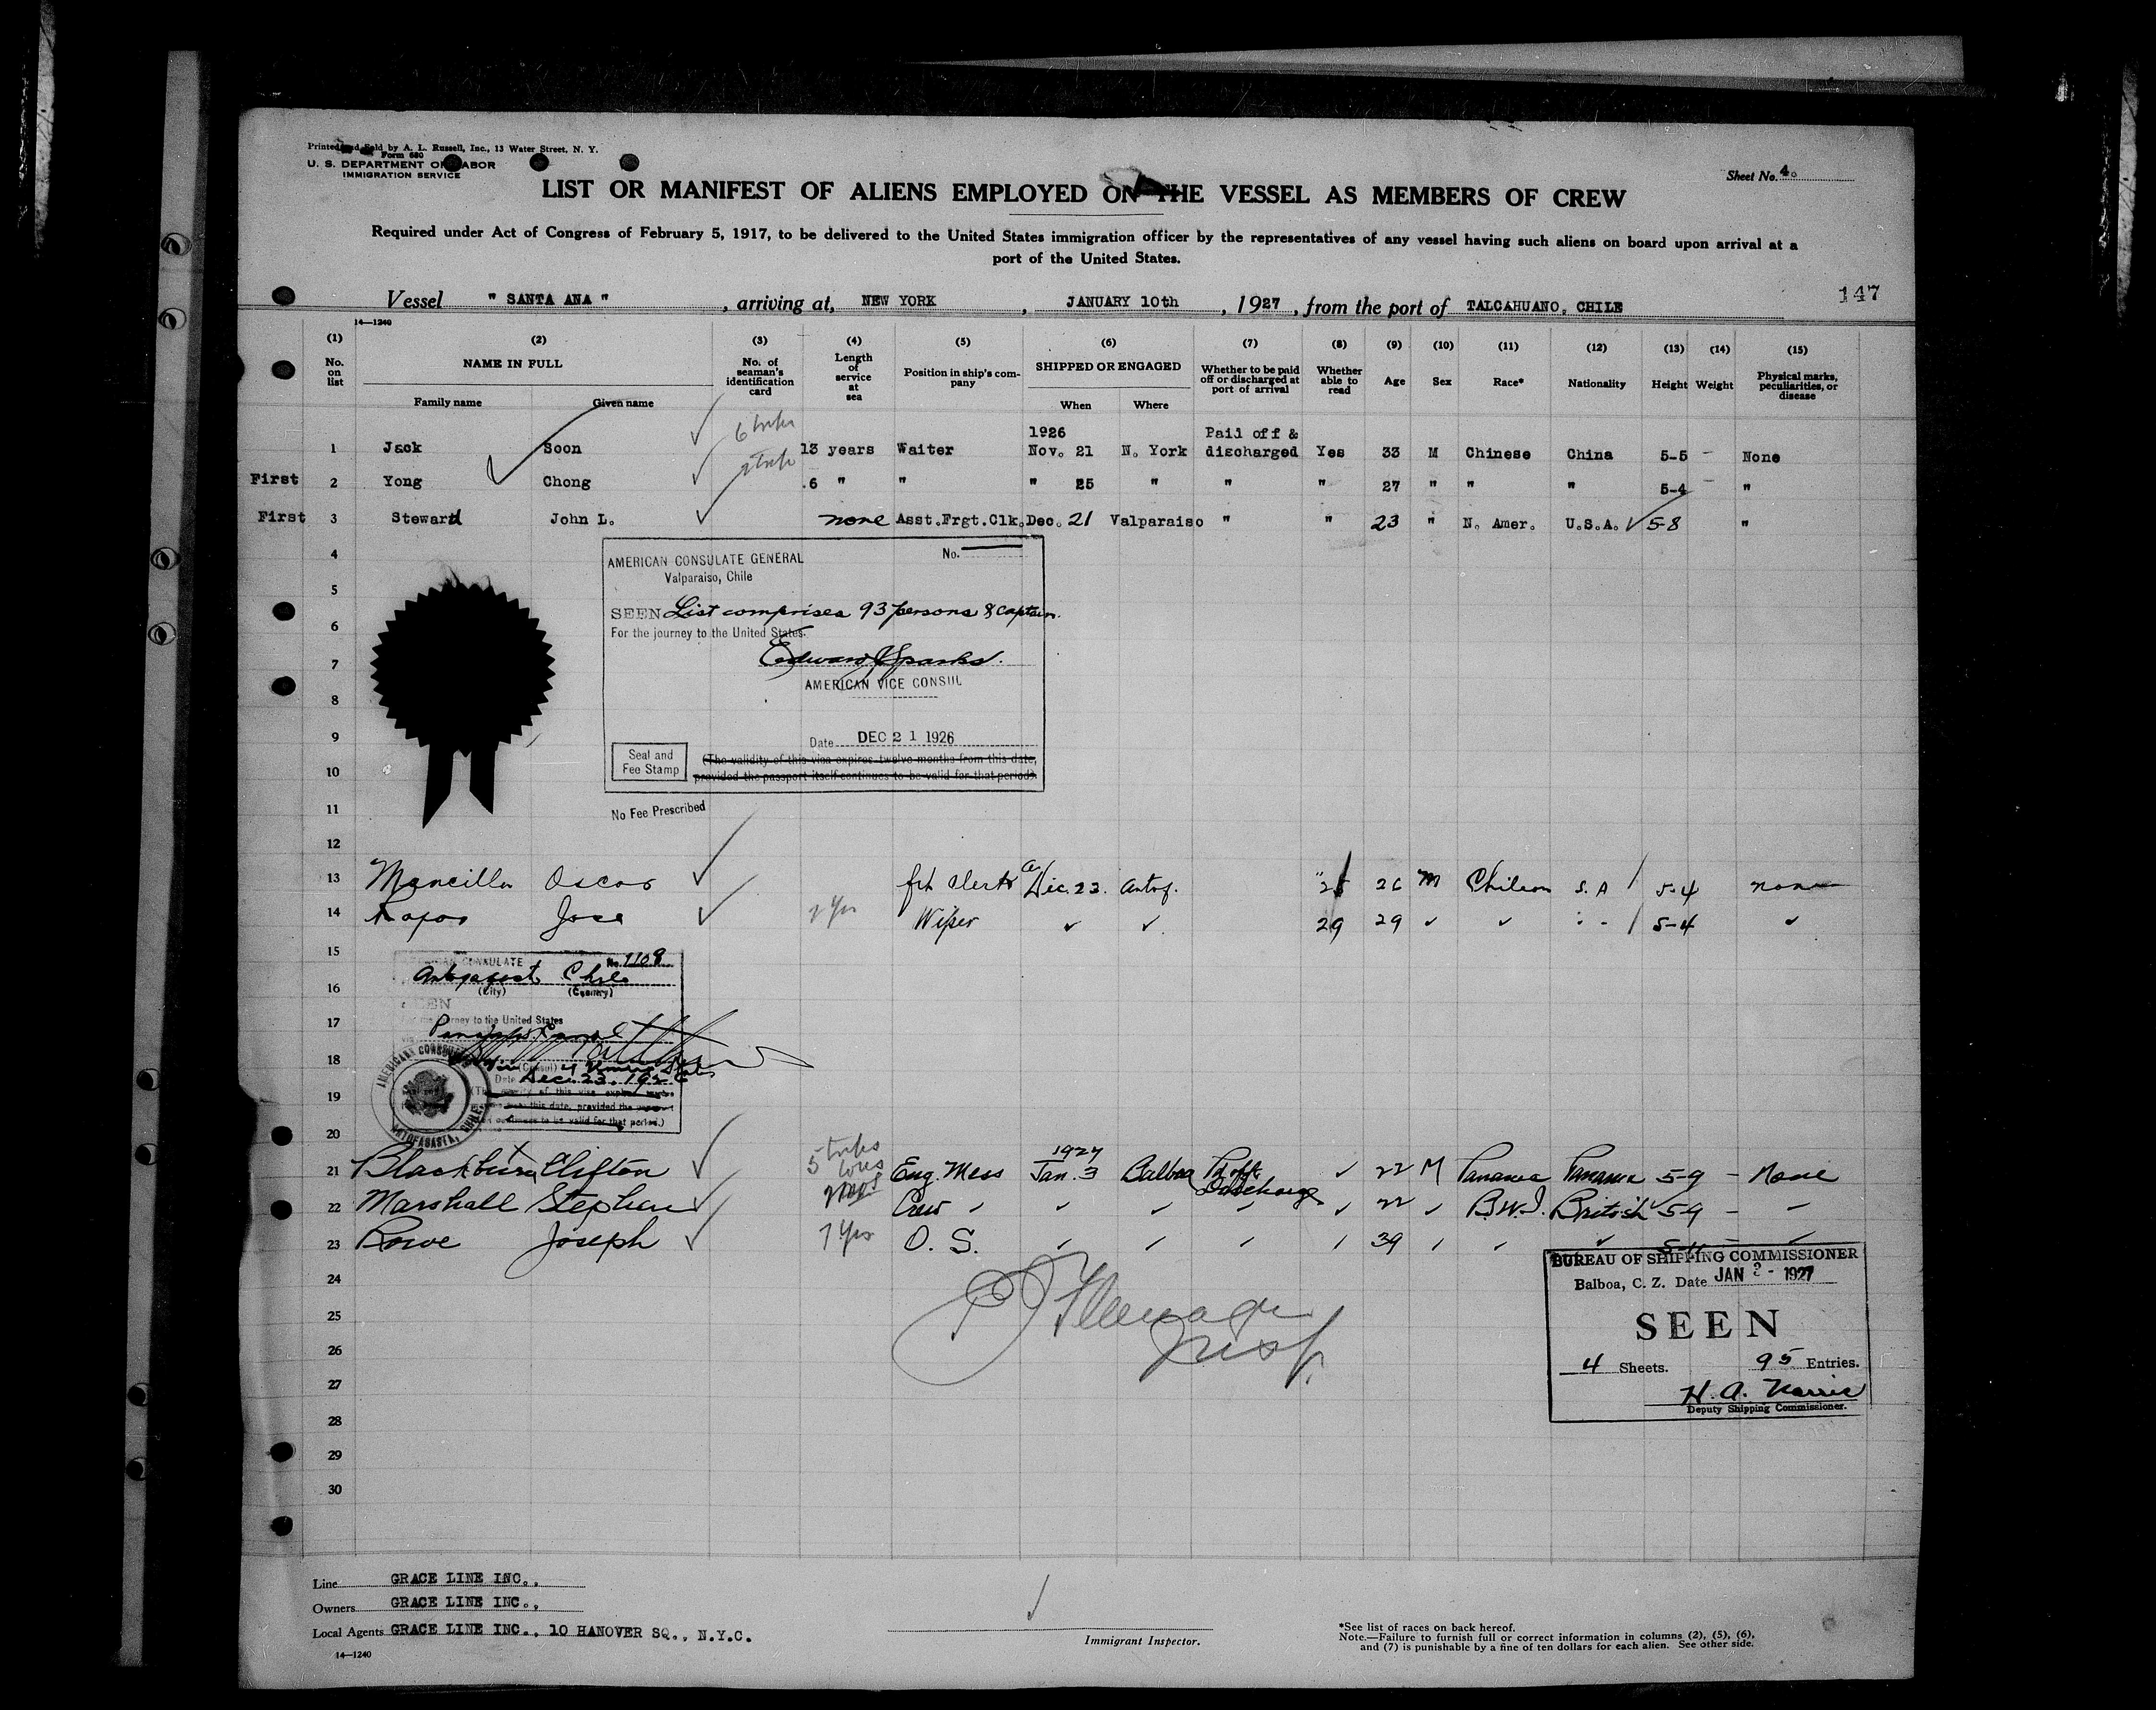 Printed and Sold by A. L. Russell, Inc., 13 Water Street, N. Y.
Form 680
U. S. DEPARTMENT OF LABOR
IMMIGRATION SERVICE
Sheet No. 4.
LIST OR MANIFEST OF ALIENS EMPLOYED ON THE VESSEL AS MEMBERS OF CREW
Required under Act of Congress of February 5, 1917, to be delivered to the United States immigration officer by the representatives of any vessel having such aliens on board upon arrival at a
port of the United States.
Vessel " SANTA ANA " , arriving at, NEW YORK , JANUARY 10th , 1927 , from the port of TALCAHUANO, CHILE
147
14—1240
(1) (2) (3) (4) (5) (6) (7) (8) (9) (10) (11) (12) (13) (14) (15)
No. on list NAME IN FULL Family name Given name No. of seaman's identification card Length of service at sea Position in ship's company SHIPPED OR ENGAGED When Where Whether to be paid off or discharged at port of arrival Whether able to read Age Sex Race* Nationality Height Weight Physical marks, peculiarities, or disease
6 trips
1926 Paid off &
1 Jack Soon 13 years Waiter Nov. 21 N. York discharged Yes 33 M Chinese China 5-5 - None
First 2 Yong Chong 6 " " " 25 " " " 27 " " " 5-4 - "
First 3 Steward John L. none Asst.Frgt.Clk. Dec. 21 Valparaiso " " 23 " N. Amer. U.S.A. 5-8 "
4
AMERICAN CONSULATE GENERAL No.
Valparaiso, Chile
5
SEEN List comprises 93 persons & captain.
6
For the journey to the United States.
7
AMERICAN VICE CONSUL
8
9
Date DEC 21 1926
Seal and Fee Stamp (The validity of this visa expires twelve months from this date,
10
provided the passport itself continues to be valid for that period).
11
No Fee Prescribed
12
13 Mancilla Oscar frt Clerk Dec. 23 Antof. 26 M Chilean S. A 5-4 none
14 Jose 2 yrs Wiper ✓ ✓ 29 29 ✓ ✓ 5-4 ✓
15
AMERICAN CONSULATE No. 1109
Antofagasta Chile
16
(City) (Country)
SEEN
17
For the journey to the United States
18
(Consul) of United States
Date Dec. 23. 1926
19
(The validity of this visa expires
this date, provided the
continues to be valid for that period.)
AMERICAN CONSULATE ANTOFAGASTA, CHILE
20
5 trips 1927
21 Blackburn Clifton Eng. Mess Jan. 3 Balboa Pd off ✓ 22 M Panama Panama 5-9 - None
Discharge
22 Marshall Stephen Crew " " " " ✓ 22 " B.W.I. British 5-9 - "
23 Rowe Joseph 7 yrs O. S. " " " " 39 " " " 5-11 - "
24
BUREAU OF SHIPPING COMMISSIONER
Balboa, C. Z. Date JAN 3 - 1927
25
SEEN
26
Insp.
4 Sheets. 95 Entries.
27
H. A. Norris
Deputy Shipping Commissioner.
28
29
30
Line GRACE LINE INC.,
Owners GRACE LINE INC.,
Local Agents GRACE LINE INC., 10 HANOVER SQ., N.Y.C.
14—1240
Immigrant Inspector.
*See list of races on back hereof.
Note.—Failure to furnish full or correct information in columns (2), (5), (6),
and (7) is punishable by a fine of ten dollars for each alien. See other side.